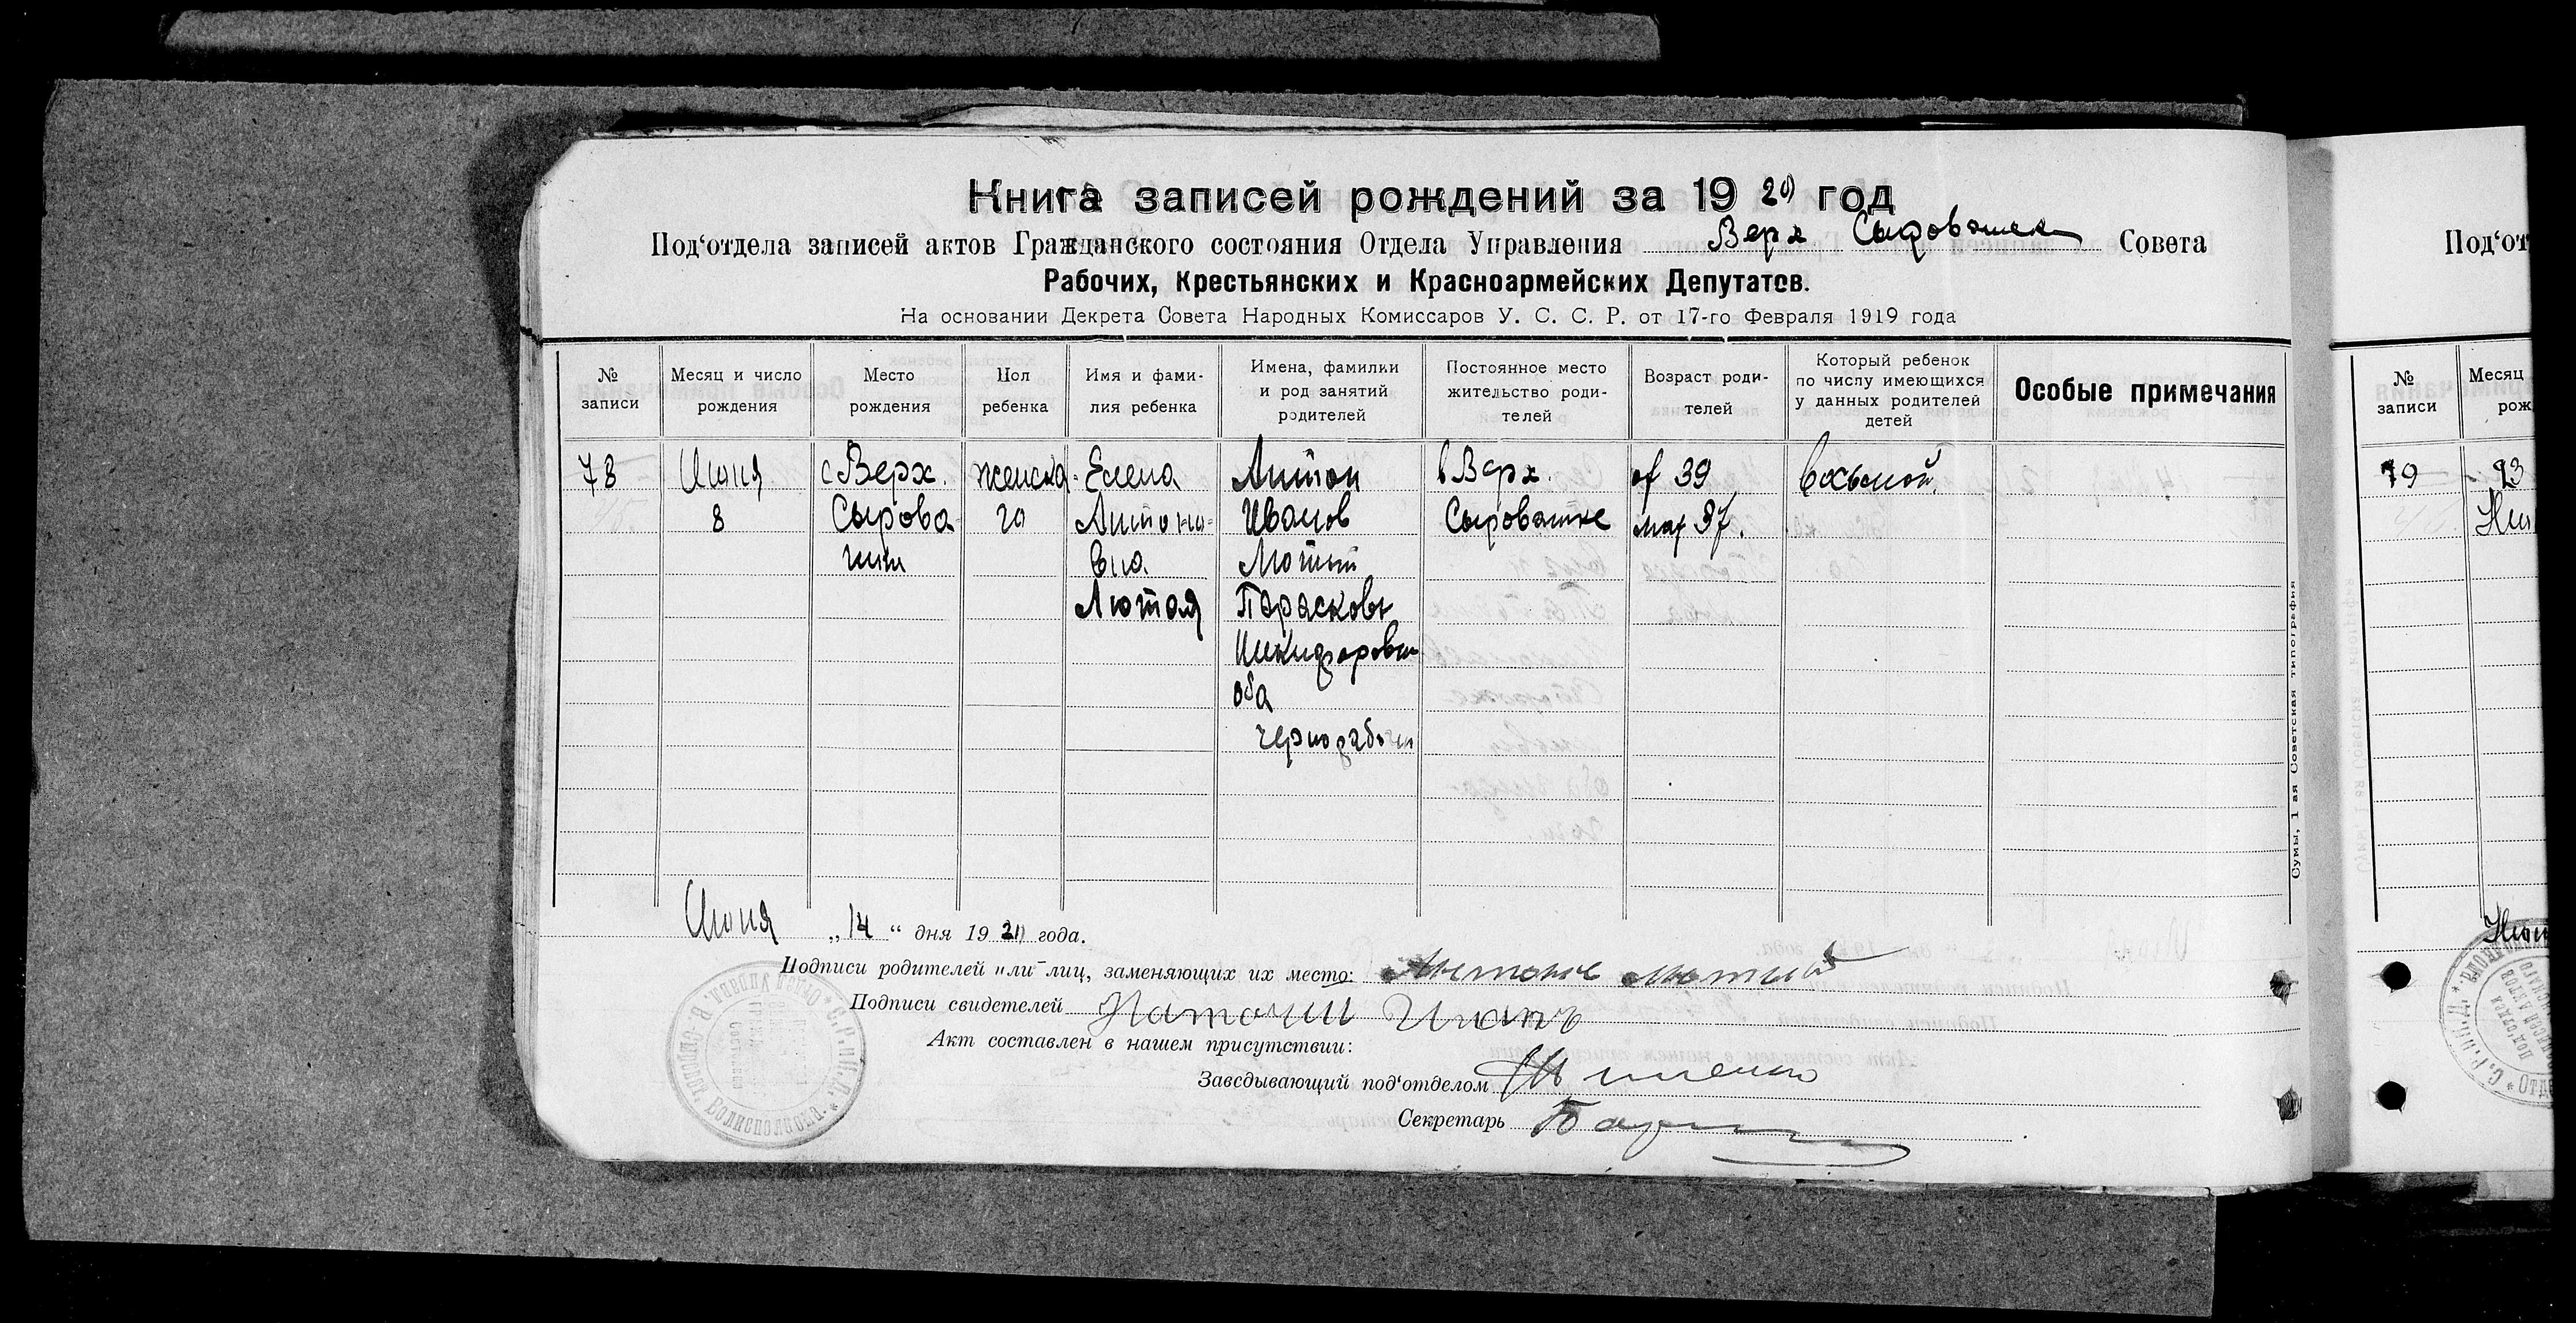 Книга записей рождений за 1920 год
Под‘отдела записей актов Гражданского состояния Отдела Управления Верх Сыроватск Совета
Рабочих, Крестьянских и Красноармейских Депутатов.
На основании Декрета Совета Народных Комиссаров У. С. С. Р. от 17-го Февраля 1919 года
№ записи
Месяц и число рождения
Место рождения
Пол ребенка
Имя и фами-
лия ребенка
Имена, фамилии
и род занятий
родителей
Постоянное место
жительство роди-
телей
Возраст роди-
телей
Который ребенок
по числу имеющихся
у данных родителей
детей
Особые примечания
78
Июня
8
с Верх.
Сырова
тки
женска
го
Елена
Антоно-
вна
Лютая
Антон
Иванов
Лютый
Парасковь
Никифоровн
оба
чернорабочи
в Верх.
Сыроватке
от 39
мат 37.
восьмой.
Июня „14“ дня 1920 года.
Подписи родителей или лиц, заменяющих их место: Антонъ Лютый
Подписи свидетелей
Акт составлен в нашем присутствии:
Заведывающий под‘отделом
Секретарь
Сумы, 1 ая Советская типография
Под‘от
№ записи
Месяц
рож
79
23